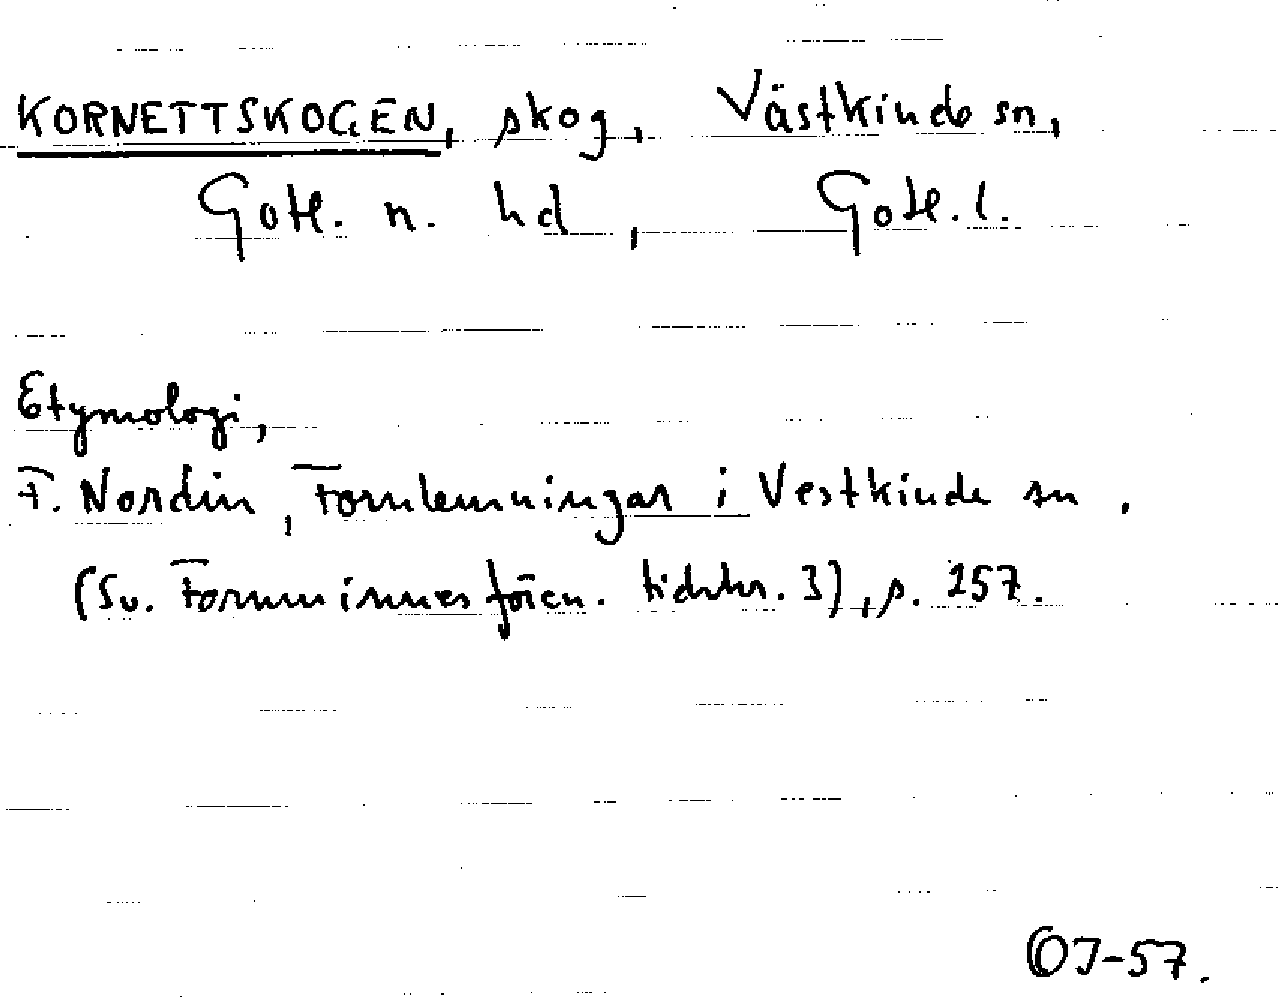 KORNETTSKOGEN, skog, Västkinde sn,
Gotl. n. hd, Gotl. l.
Etymologi,
F. Nordin, Fornlemningar i Vestkinde sn.
(Sv. Fornminnesfören. tidskr. 3), p. 257.
OJ-57.